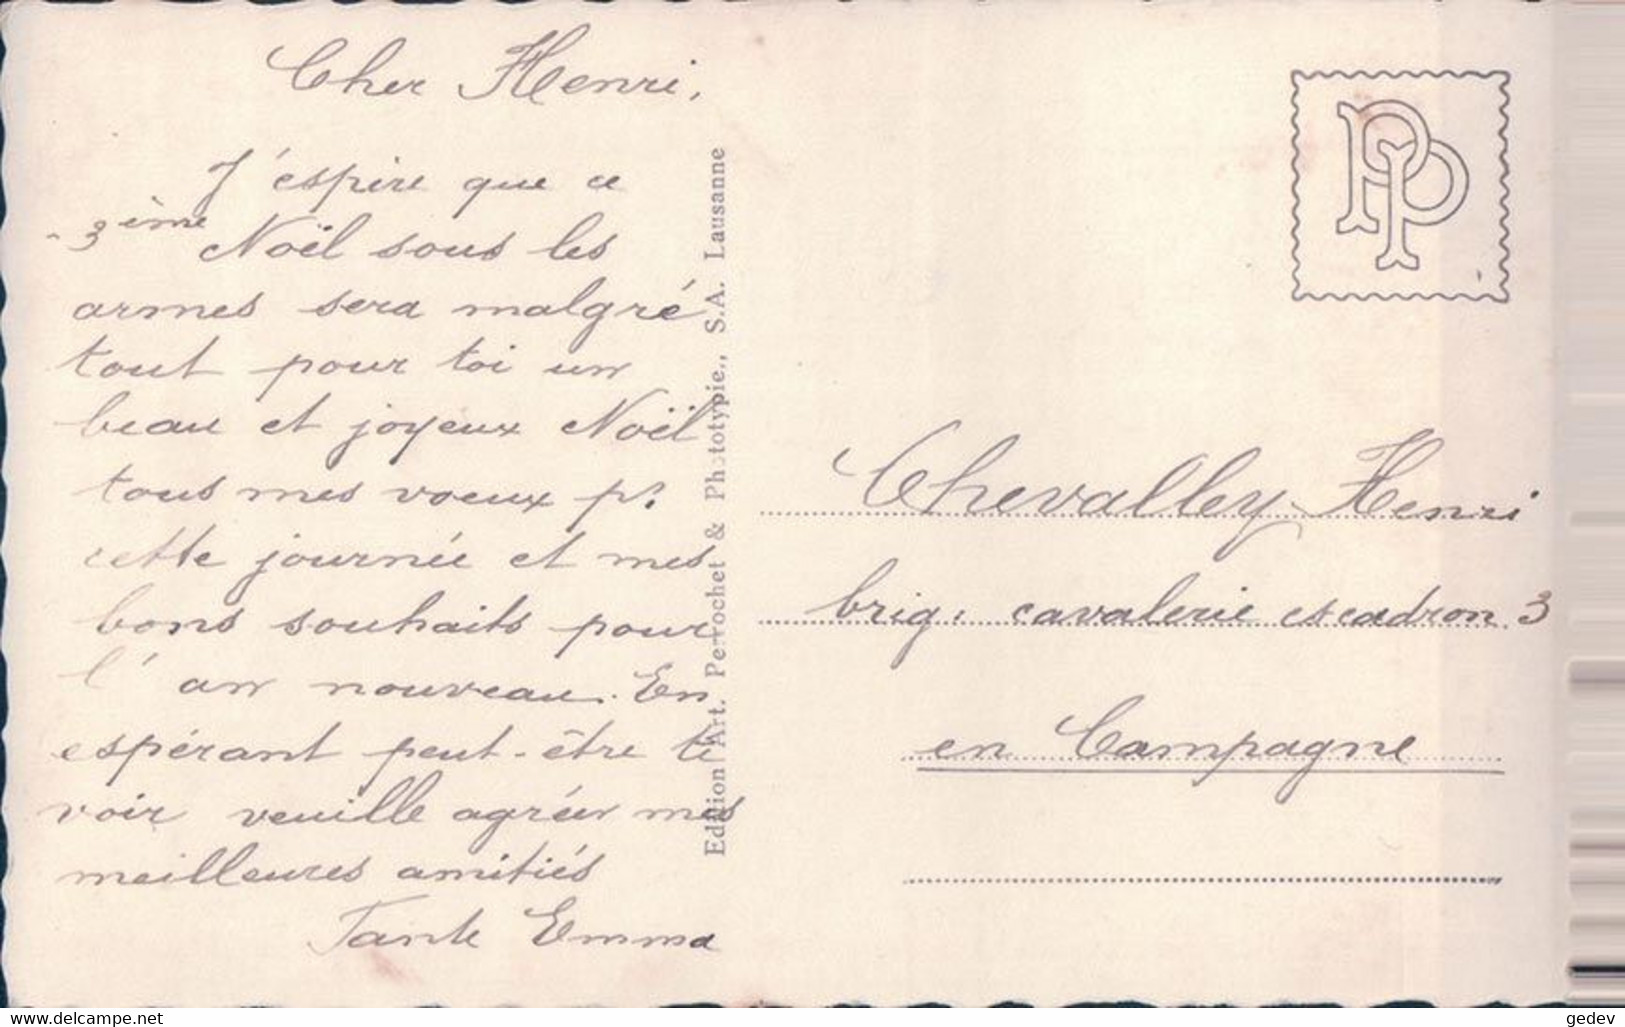 Cher Henri,
J'éspire que ce
3ième Noël sous les
armes sera malgré
tout pour toi un
beau et joyeux Noël
tous mes voeux pr.
cette journée et mes
bons souhaits pour
l'an nouveau. En
espérant peut-être te
voir veuille agréer mes
meilleures amitiés
Tante Emma
Edition Art. Perrochet & Phototypie., S.A. Lausanne
PP
Chevalley Henri
brig: cavalerie escadron 3
en Campagne
www.delcampe.net
gedev